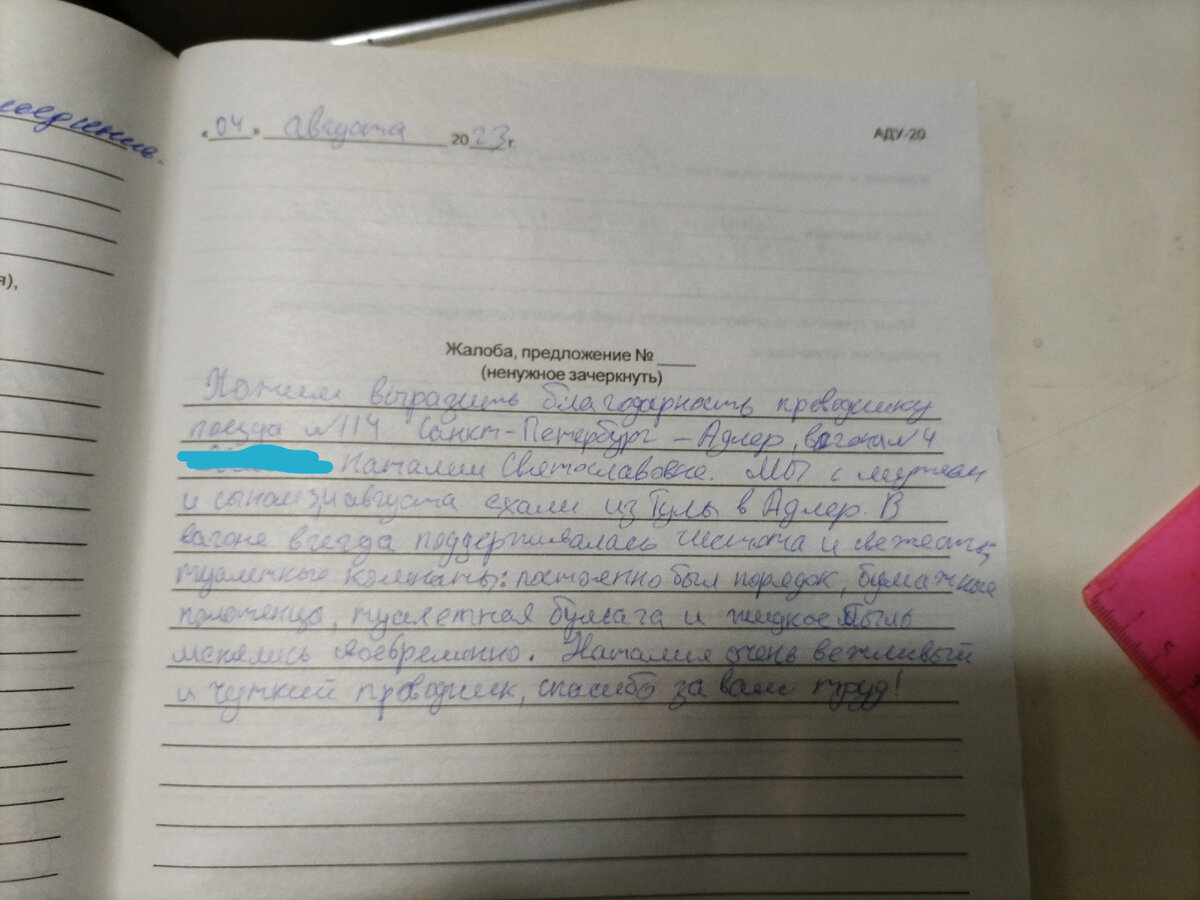 «04» августа 2023 г.
АДУ-20
Жалоба, предложение № ____
(ненужное зачеркнуть)
Хотим выразить благодарность проводнику
поезда №114 Санкт-Петербург – Адлер, вагона №4
Наталии Святославовне. Мы с мужем
и сыном 3,4 августа ехали из Тулы в Адлер. В
вагоне всегда поддерживалась чистота и свежесть,
туалетные комнаты: постоянно был порядок, бумажные
полотенца, туалетная бумага и жидкое мыло
менялись своевременно. Наталия очень вежливый
и чуткий проводник, спасибо за ваш труд!
я),